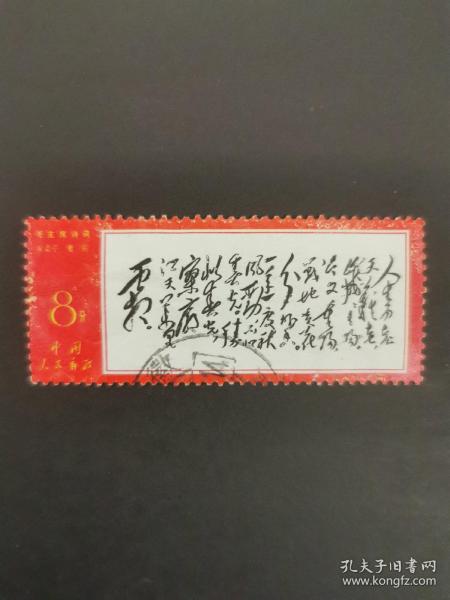 毛主席诗词
采桑子 重阳
8分
中国
人民邮政
人生易老
天难老
岁岁重阳
今又重阳
战地黄花
分外香
一年一度秋
风劲不似
春光胜
似春光
寥廓
江天万里
霜
孔夫子旧书网
www.kongfz.com